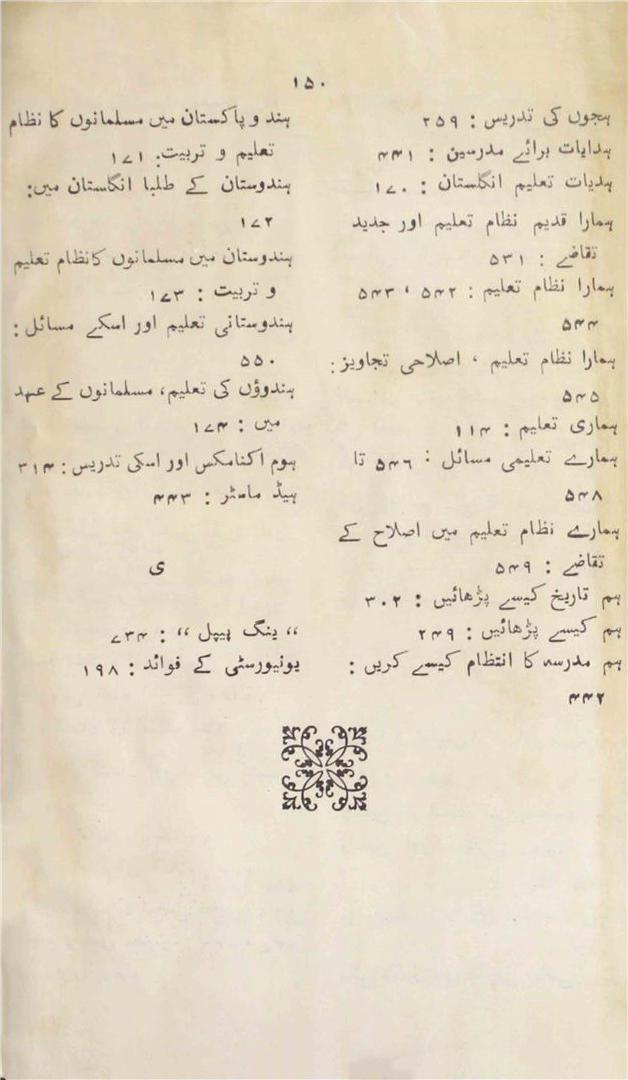 ۱۵۰
ہجوں کی تدریس : ۲۵۹
ہدایات برائے مدرسین : ۴۴۱
ہدیات تعلیم انگلستان : ۱۷۰
ہمارا قدیم نظام تعلیم اور جدید
تقاضے : ۵۳۱
ہمارا نظام تعلیم : ۵۴۲ ، ۵۴۳
۵۴۴
ہمارا نظام تعلیم ، اصلاحی تجاویز :
۵۴۵
ہماری تعلیم : ۱۱۴
ہمارے تعلیمی مسائل : ۵۴۶ تا
۵۴۸
ہمارے نظام تعلیم میں اصلاح کے
تقاضے : ۵۴۹
ہم تاریخ کیسے پڑھائیں : ۳۰۲
ہم کیسے پڑھائیں : ۲۴۹
ہم مدرسہ کا انتظام کیسے کریں :
۴۴۲
ہند و پاکستان میں مسلمانوں کا نظام
تعلیم و تربیت: ۱۷۱
ہندوستان کے طلبا انگلستان میں:
۱۷۲
ہندوستان میں مسلمانوں کا نظام تعلیم
و تربیت : ۱۷۳
ہندوستانی تعلیم اور اسکے مسائل :
۵۵۰
ہندوؤں کی تعلیم، مسلمانوں کے عہد
میں : ۱۷۴
ہوم اکنامکس اور اسکی تدریس : ۳۱۴
ہیڈ ماسٹر : ۴۴۳
ی
،، ینگ پیپل ،، : ۷۳۴
یونیورسٹی کے فوائد : ۱۹۸